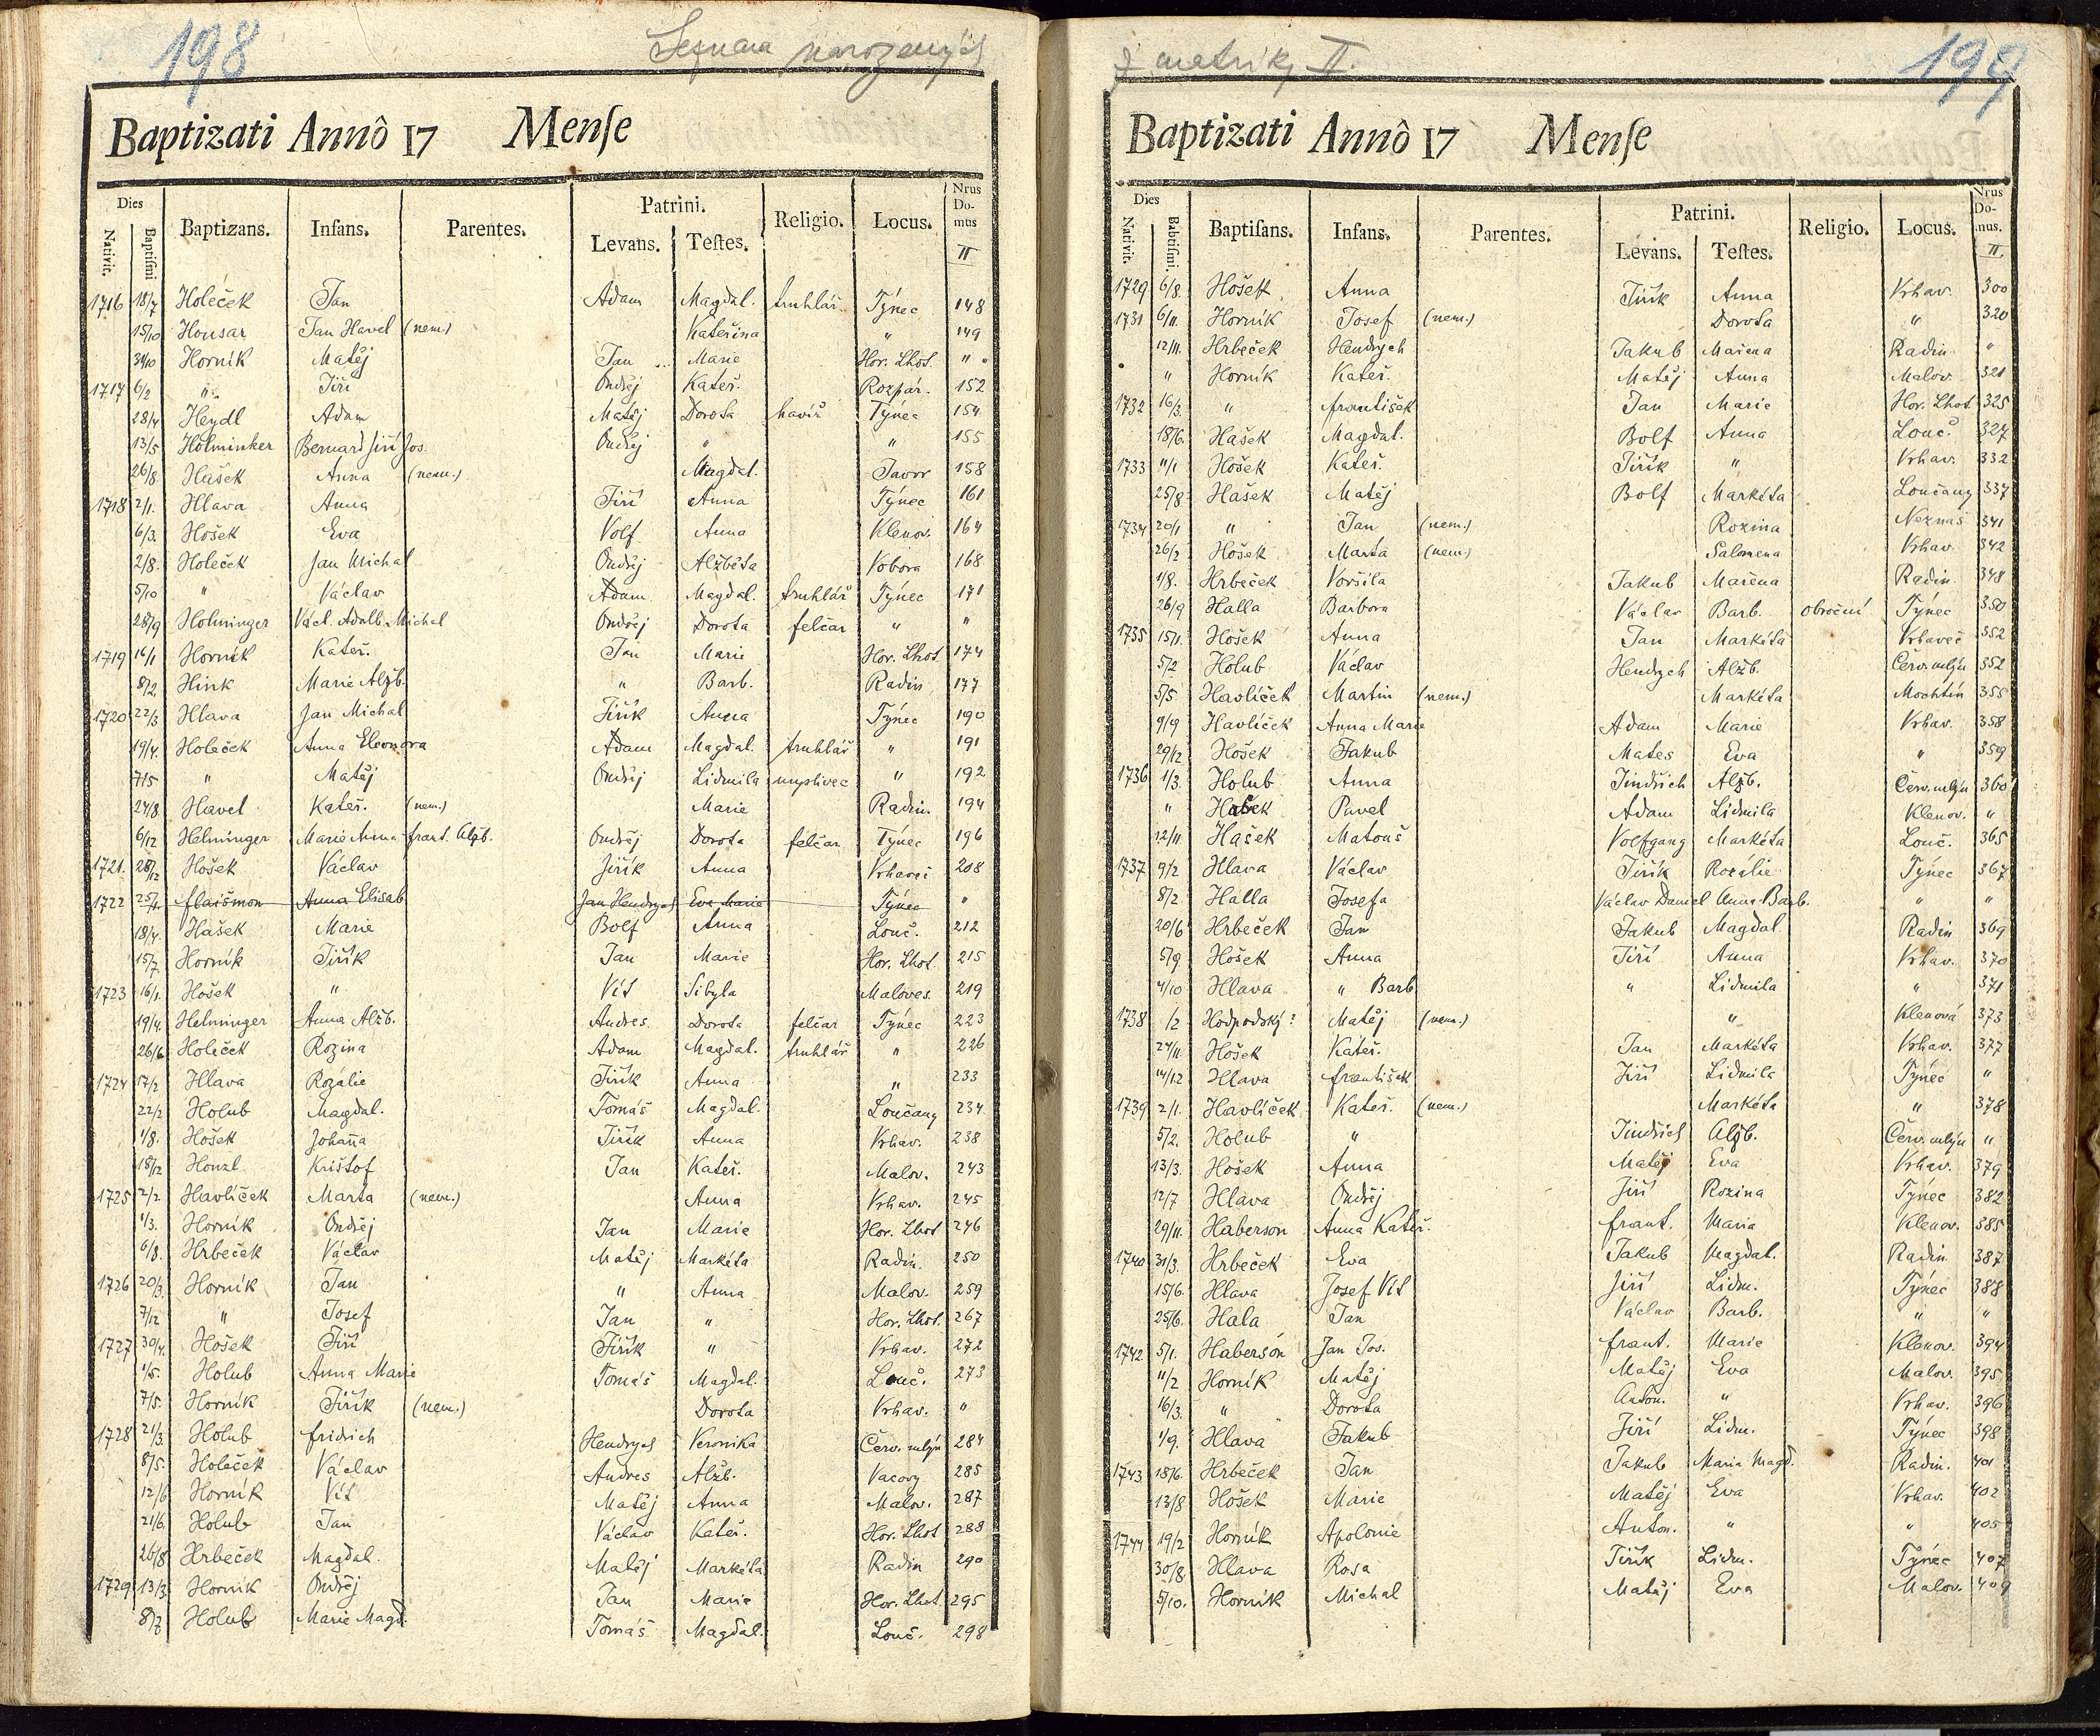 198
Seznam narozených
Baptizati Annô 17 Menſe
Dies Nativit. Baptiſmi Baptizans. Infans. Parentes. Patrini. Levans. Teſtes. Religio. Locus. Nrus Do- mus II
1716 18/7 Holeček Jan Adam Magdal. truhlář Týnec 148
15/10 Housar Jan Havel (nem.) Kateřina " 149
31/10 Horník Matěj Jan Marie Hor. Lhot. "
1717 6/2 " Jiří Ondřej Kateř. Rozpár. 152
28/4 Heydl Adam Matěj Dorota havíř Týnec 154
13/5 Holminker Bernard Jiří Jos. Ondřej " " 155
26/8 Hašek Anna (nem.) Magdal. Javor 158
1718 2/1. Hlava Anna Jiří Anna Týnec 161
6/3. Hošek Eva Volf Anna Klenov. 164
2/8. Holeček Jan Michal Ondřej Alžběta Vobora 168
5/10 " Václav Adam Magdal. truhlář Týnec 171
28/9 Holminger Václ. Adalb. Michal Ondřej Dorota felčar " "
1719 16/1 Horník Kateř. Jan Marie Hor. Lhot. 174
8/2 Hink Marie Alžb. " Barb. Radin 177
1720 22/3 Hlava Jan Michal Jiřík Anna Týnec 190
19/4. Holeček Anna Eleonora Adam Magdal. truhlář " 191
7/5 " Matěj Ondřej Lidmila myslivec " 192
24/8. Havel Kateř. (nem.) Marie Radin. 194
6/12 Helminger Marie Anna frant. Alžb. Ondřej Dorota felčar Týnec 196
1721. 28/12 Hošek Václav Jiřík Anna Vrhaveč 208
1722 25/4. flaišmon Anna Elisab. Jan Hendrych Eva Marie Týnec "
18/4. Hašek Marie Bolf Anna Louč. 212
15/7. Horník Jiřík Jan Marie Hor. Lhot. 215
1723 16/1. Hošek " Vít Sibyla Maloves. 219
19/4. Helminger Anna Alžb. Andres Dorota felčar Týnec 223
26/6 Holeček Rozina Adam Magdal. truhlář " 226
1724 17/2 Hlava Rozálie Jiřík Anna " 233
22/2 Holub Magdal. Tomáš Magdal. Loučany 234
1/8. Hošek Johanna Jiřík Anna Vrhav. 238
18/12 Honzl Krištof Jan Kateř. Malov. 243
1725 2/2 Havlíček Marta (nem.) Anna Vrhav. 245
1/3. Horník Ondřej Jan Marie Hor. Lhot 246
6/8. Hrbeček Václav Matěj Markéta Radin. 250
1726 20/3. Horník Jan " Anna Malov. 259
7/12 " Josef Jan " Hor. Lhot. 267
1727 30/4. Hošek Jiří Jiřík " Vrhav. 272
1/5. Holub Anna Marie Tomáš Magdal. Louč. 273
7/5. Horník Jiřík (nem.) Dorota Vrhav. "
1728 21/3. Holub fridrich Hendrych Veronika Červ. mlýn 284
8/5. Holeček Václav Andres Alžb. Vacovy 285
12/6 Horník Vít Matěj Anna Malov. 287
21/6. Holub Jan Václav Kateř. Hor. Lhot 288
26/8 Hrbeček Magdal. Matěj Markéta Radin 290
1729 13/3. Horník Ondřej Jan Marie Hor. Lhot. 295
8/7 Holub Marie Magd. Tomáš Magdal. Louč. 298
z matriky II.
199
Baptizati Annô 17 Menſe
Dies Nativit. Babtiſmi. Baptiſans. Infans. Parentes. Patrini. Levans. Teſtes. Religio. Locus. Nrus Do- mus. II.
1729 6/8. Hošek Anna Jiřík Anna Vrhav. 300
1731 6/11. Horník Josef (nem.) Dorota " 320
12/11. Hrbeček Hendrych Jakub Mařena Radin "
" Horník Kateř. Matěj Anna Malov. 321
1732 16/3. " františek Jan Marie Hor. Lhot. 325
18/6. Hašek Magdal. Bolf Anna Louč. 327
1733 11/1 Hošek Kateř. Jiřík " Vrhav. 332
25/8. Hašek Matěj Bolf Markéta Loučany 337
1734 20/1 " Jan (nem.) Rozina Neznaš 341
26/2 Hošek Marta (nem.) Salomena Vrhav. 342
1/8. Hrbeček Voršila Jakub Mařena Radin 348
26/9 Halla Barbora Václav Barb. obroční Týnec 350
1735 15/1. Hošek Anna Jan Markéta Vrhaveč 352
5/2 Holub Václav Hendrych Alžb. Červ. mlýn 352
5/5. Havlíček Martin (nem.) Markéta Mochtín 355
9/9 Havlíček Anna Marie Adam Marie Vrhav. 358
29/12 Hošek Jakub Mates Eva " 359
1736 1/3. Holub Anna Jindřich Alžb. Červ. mlýn 360
" Hašek Pavel Adam Lidmila Klenov. "
12/11 Hašek Matouš Volfgang Markéta Louč. 365
1737 9/2 Hlava Václav Jiřík Rozálie Týnec 367
8/2. Halla Josefa Václav Daniel Anna Barb. " "
20/6 Hrbeček Jan Jakub Magdal. Radin 369
5/9 Hošek Anna Jiří Anna Vrhav. 370
4/10 Hlava " Barb. " Lidmila " 371
1738 /2 Hodpodský? Matěj (nem.) " Klenová 373
24/11. Hošek Kateř. Jan Markéta Vrhav. 377
14/12 Hlava františek Jiří Lidmila Týnec "
1739 2/1. Havlíček Kateř. (nem.) Markéta " 378
5/2. Holub " Jindřich Alžb. Červ. mlýn "
13/3. Hošek Anna Matěj Eva Vrhav. 379
12/7 Hlava Ondřej Jiří Rozina Týnec 382
29/11. Haberson Anna Kateř. frant. Maria Klenov. 385
1740 31/3. Hrbeček Eva Jakub Magdal. Radin 387
15/6. Hlava Josef Vít Jiří Lidm. Týnec 388
25/6. Hala Jan Václav Barb. " "
1742 5/1. Haberson Jan Jos. frant. Marie Klenov. 394
11/2 Horník Matěj Matěj Eva Malov. 395
16/3. " Dorota Anton. " Vrhav. 396
1/9. Hlava Jakub Jiří Lidm. Týnec 398
1743 18/6. Hrbeček Jan Jakub Maria Magd. Radin. 401
13/8 Hošek Marie Matěj Eva Vrhav. 402
1744 19/2 Horník Apolonie Anton. " " 405
30/8. Hlava Rosa Jiřík Lidm. Týnec 407
5/10. Horník Michal Matěj Eva Malov. 409